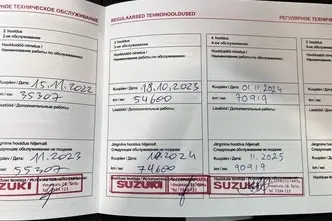 РНОЕ ТЕХНИЧЕСКОЕ ОБСЛУЖИВАНИЕ
2-ое обслуживание
Hoolduse nimetus /
Наименование работы по обслуживанию:
Kuupäev / Дата:
15.11.2022
km / км:
35307
Lisatööd / Дополнительные работы:
Järgmine hooldus hiljemalt
Следующее обслуживание не позднее
Kuupäev / Дата:
11.2023
km / км:
55307
SUZUKI
REGULAARSED TEHNOHOOLDUSED
3. hooldus
3-ое обслуживание
Hoolduse nimetus /
Наименование работы по обслуживанию:
Kuupäev / Дата:
18.10.2023
km / км:
54600
Lisatööd / Дополнительные работы:
Järgmine hooldus hiljemalt
Следующее обслуживание не позднее
Kuupäev / Дата:
10.2024
km / км:
74600
SUZUKI
РЕГУЛЯРНОЕ ТЕХНИЧЕСКОЕ
4. hooldus
4-ое обслуживание
Hoolduse nimetus /
Наименование работы по обслуживанию:
Kuupäev / Дата:
01.11.2024
km / км:
70919
Lisatööd / Дополнительные работы:
Järgmine hooldus hiljemalt
Следующее обслуживание не позднее
Kuupäev / Дата:
11.2025
km / км:
90919
SUZUKI